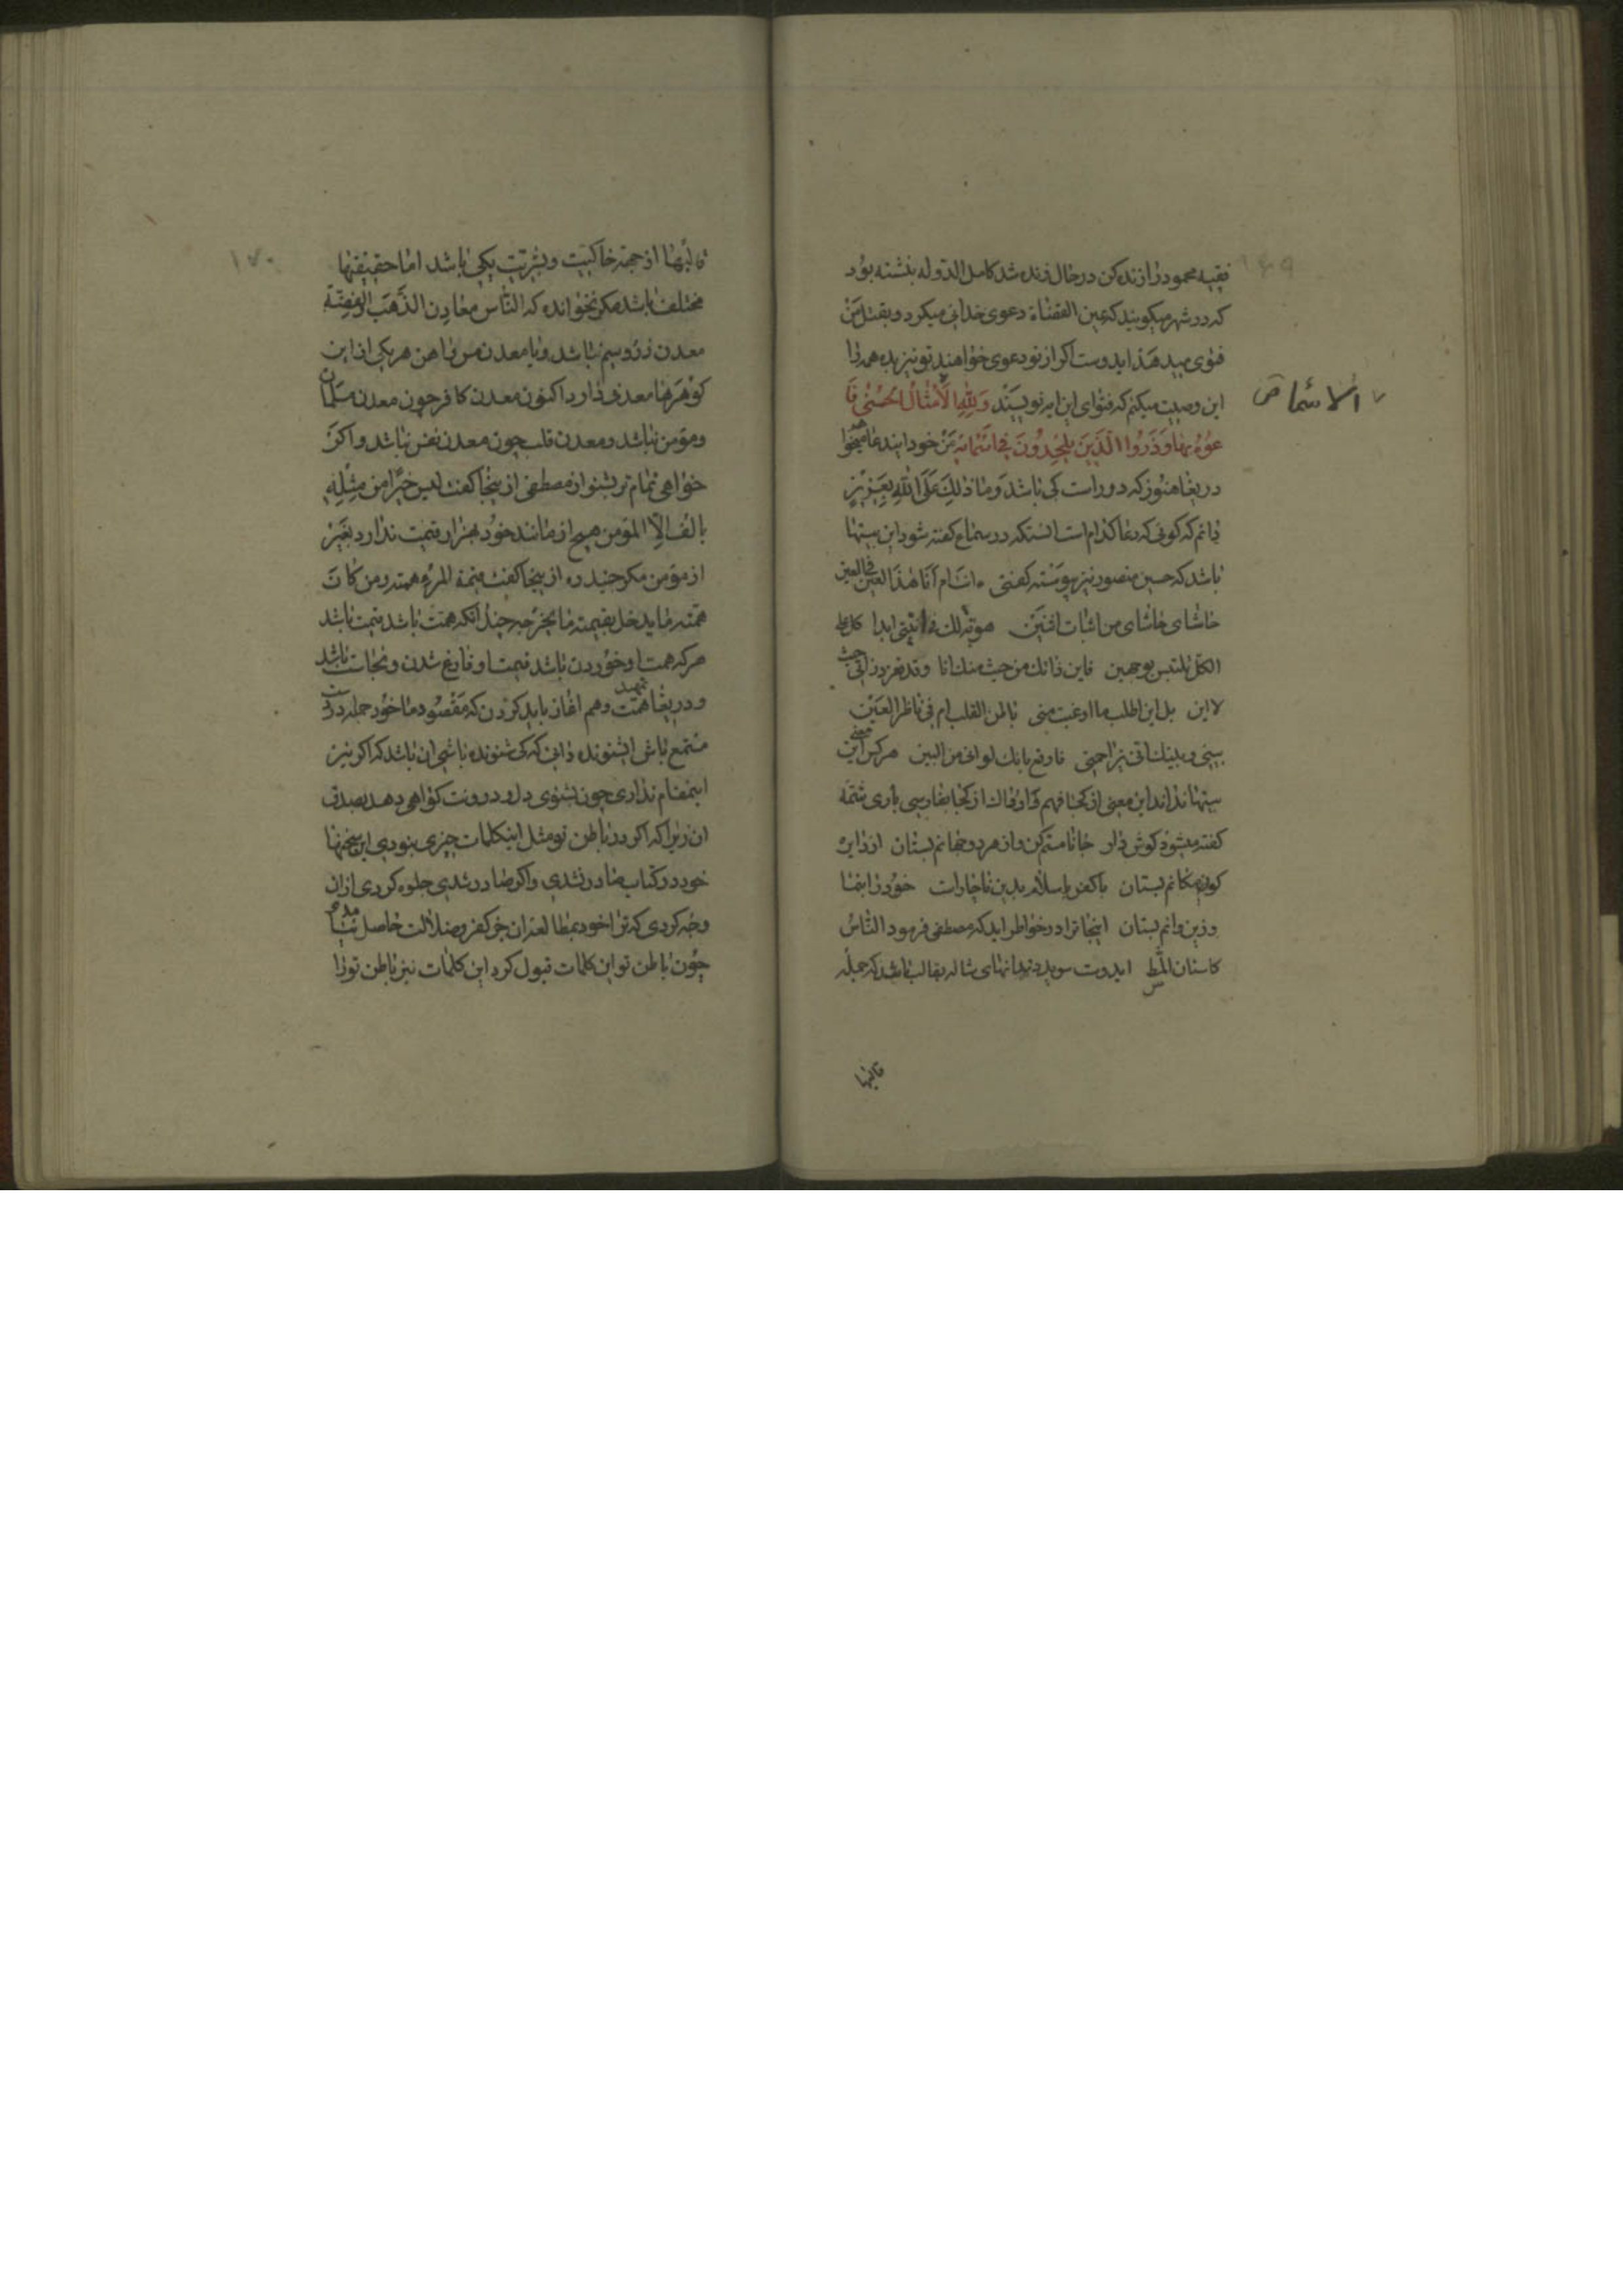 ۱۶۹
فقیه محمود را زنده کن در حال زنده شد کامل الدوله بنشته بود
که در شهر میکویند که عین القضاة دعوی خدایی میکرد و بقتل من
فتوی میدهند ایدوست اکر از تو دعوی خواهند تو نیز بده همه را
این وصیت میکنم که فتوای این ایه نویسند وَلِلّٰهِ الْأَمْثَالُ الحُسْنٰى فَا
الاسماء ص
دْعُوهُ بِهَا وَذَرُوا الَّذِينَ يُلْحِدُونَ فِي أَسْمَائِهِ من خود ایند عا میخواهم
دریغا هنوز که دوراست کی باشد وَمَا ذٰلِكَ عَلَى اللّٰهِ بِعَزِيزٍ
دانم که کوئی که دعا کدام است انستکه در سماع کفته شود این بیتها
باشد که حسین منصور نیز پیوسته کفتی ءانت ام انا هذا العین فی العین
حاشای حاشای من اثبات اثنین هویة لك فی لائیتی ابدا کل علی
الکل تلتبس بوجهین فاین ذاتك من حیث منك انا وقد تفرد ذاتی حیث
لا این بل این اطلب ما اودعت منی بالمن القلب ام فی ناظر العین
بینی وبینك انی یزاحمنی فارفع بانك لو انی من البین هرکس این معنی
بیتها نداند این معنی از کجا فهم کند اوفات از کجا بفارسی باری شمّه
کفته میشود کوش دار جانا مستم کن و از هر دو جهانم بستان از دایره
کون و مکانم بستان با کفر باسلام بدین ناچارات خود را بنما
وزین وانم بستان اینجا ترا در خواطر اید که مصطفی فرمود الناس
کاسنان المشط ایدوست سویه دندانهای شانه بقالب باشد که جمله
قالبها
۱۷۰
قالبها از جهة خاکیت و بشریت یکی باشد اما حقیقتها
مختلف باشد مکر نخوانده که الناس معادن الذَّهَب والفضّة
معدن زر و سیم باشد و یا معدن مس و اهن هر یکی از این
کوهرها معدنی دارد اکنون معدن کافر چون معدن مسلمان
ومؤمن نباشد ومعدن قلب چون معدن نفس نباشد و اکر
خواهی تمام تر بشنو از مصطفی از ینجا کفت لیس خیراً من مِثْلِهِ
بالف الّا المؤمن هیچ از مانند خود بهزار قیمت ندارد بغیر
از مؤمن مکر جنیده از ینجا کفت قیمة المرء همته ومن کانَ
همّته ما یدخل بقیمته ما یخرج هر چند انکه همت باشد قیمت باشد
هرکه همت او خوردن باشد قیمت او فارغ شدن و نجاست باشد
و دریغا تمهید همت وهم اغاز باید کردن که مقصود ما خود جمله درست
مستمع باش ایشنونده دانی که کی شنونده باشی ان باشد که اکر نیز
اینمقام نداری چون بشنوی دل و درونت کواهی دهد بصدق
ان زیرا که اکر در باطن تو مثل اینکلمات چیزی نبودی این سخنها
خود در کتاب صادر نشدی واکر صادر شدی جلوه کردی از ان
وجه کردی که ترا خود بمطالعه ان جز کفر وضلالت حاصل نیامدی
چون باطن تو ان کلمات قبول کرد این کلمات نیز باطن تو را